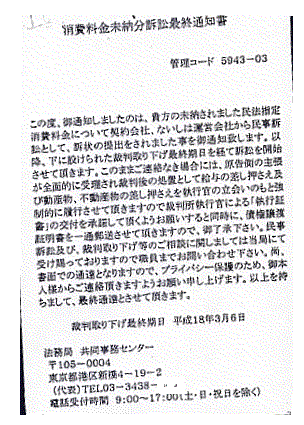 消費料金未納分訴訟最終通知書
管理コード 5943-03
この度、御通知しましたのは、貴方の未納されました民法指定
消費料金について契約会社、ないしは運営会社から民事訴
訟として、訴状の提出をされました事を御通知致します。以
降、下に設けられた裁判取り下げ最終期日を経て訴訟を開始
させて頂きます。このままご連絡なき場合には、原告側の主張
が全面的に受理され裁判後の処置として給与の差し押さえ及
び動産物、不動産物の差し押さえを執行官の立会いのもと強
制的に履行させて頂きますので裁判所執行官による「執行証
書」の交付を承諾して頂くようお願いすると同時に、債権譲渡
証明書を一通郵送させて頂きますので、御了承下さい。民事
訴訟及び、裁判取り下げ等のご相談に関しましては当局にて
受け賜っておりますので職員までお問い合わせ下さい。尚、
書面での通達となりますので、プライバシー保護のため、御本
人様からご連絡頂きますようお願い申し上げます。以上を持
ちまして、最終通達とさせて頂きます。
裁判取り下げ最終期日 平成18年3月6日
法務局 共同事務センター
〒105-0004
東京都港区新橋4-19-2
(代表)TEL03-3438-
電話受付時間 9:00~17:00(土・日・祝日を除く)